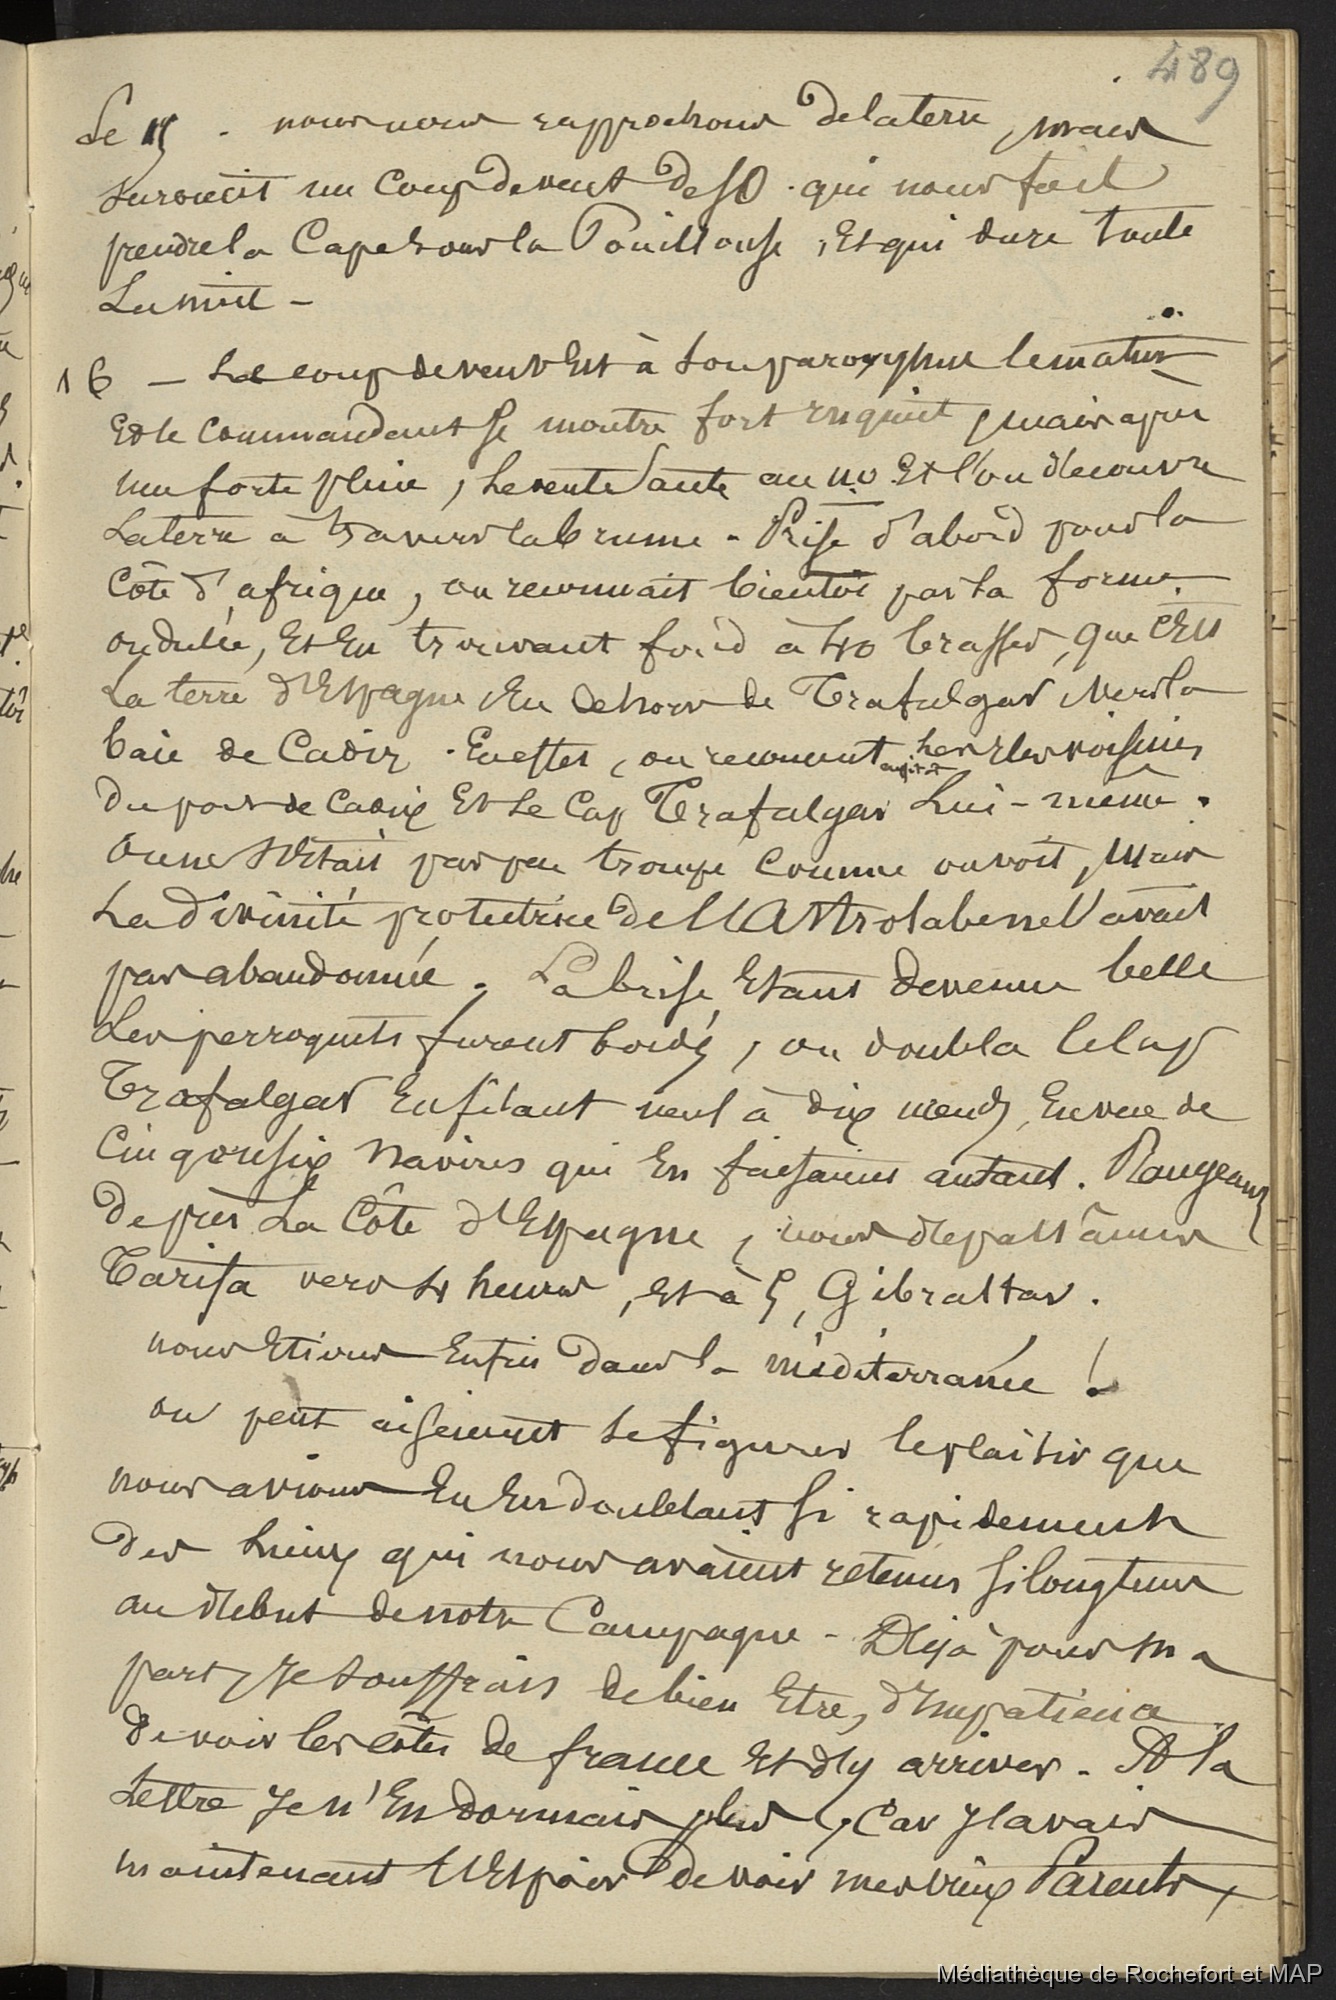 489
Le 15 . nous nous rapprochons de la terre , mais
survient un coup de vent de SO . qui nous fait
prendre la cape sous la Pouillouse , Et qui dure toute
La nuit -
16 - Le coup de vent Est à son paroxysme le matin
Et le commandant se montre fort inquiet , mais apres
une forte pluie , le vent saute au no Et l'on découvre
La terre à travers la brume . Prise d'abord pour la
Côte d'afrique , on reconnait bientôt par sa forme
ondulée , Et En trouvant fond à 40 brasses , que c'Est
La terre d'Espagne En dehors de Trafalgar Vers la
baie de Cadix . En effet , on reconnut aussitot les Iles voisines
du port de Cadix Et Le Cap Trafalgar Lui - même .
On ne s'Etait pas peu trompé comme on voit , Mais
La divinité protectrice de L'Astrolabe ne l'avait
pas abandonnée . La brise Etant devenue belle
Les perroquets furent bordés , on doubla le Cap
Trafalgar En filant neuf à dix nœuds , En vue de
Cinq ou six Navires qui En faisaient autant . Rangeant
De près La Côte d'Espagne , nous dépassâmes
Tarifa vers 4 heures , Et à 5 , Gibraltar .
nous Etions Enfin dans la méditerranée !
on peut aisément se figurer le plaisir que
nous avions En En doublant si rapidement
Des Lieux qui nous avaient retenus si longtems
au début de notre Campagne - Déjà pour ma
part , Je souffrais de bien Etre , d'Impatience
De voir les côtes de france Et d'y arriver . A la
Lettre Je n'En dormais plus , Car J'avais
maintenant L'Espoir de voir mes vieux Parents ,
Médiathèque de Rochefort et MAP